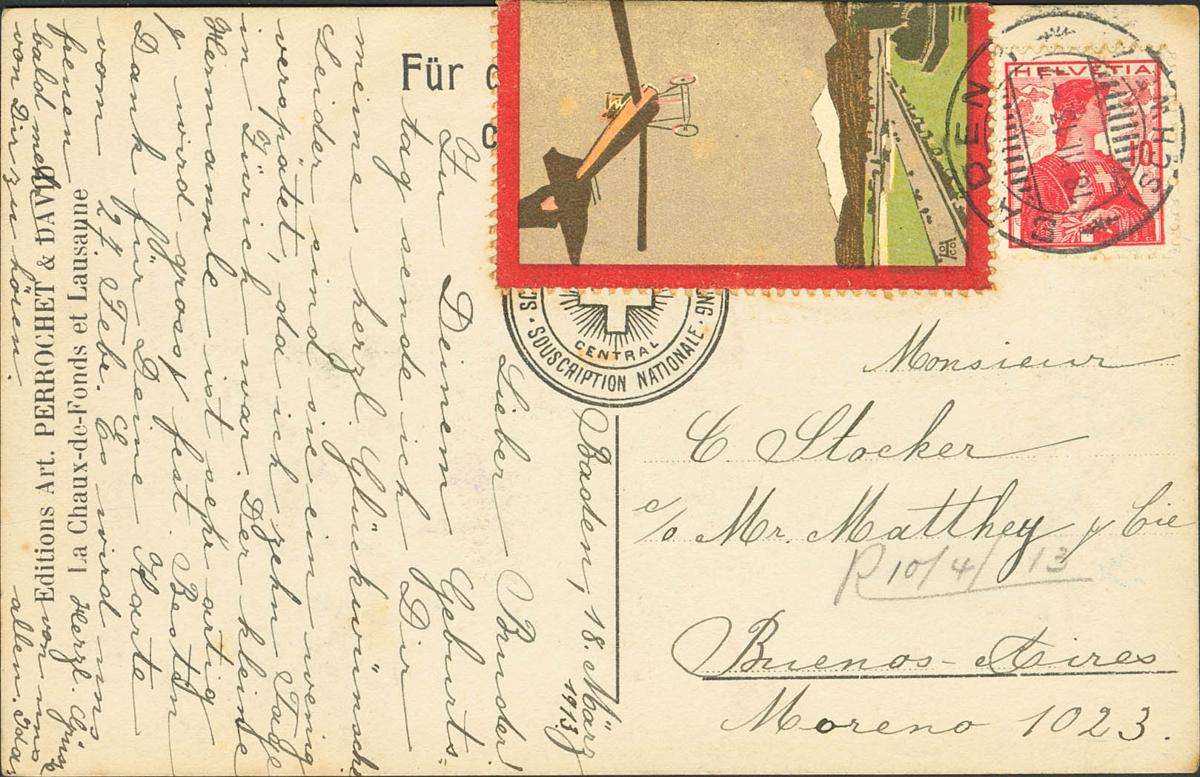 Baden, 18. März
1913
Lieber Bruder!
Zu Deinem Geburts=
tag sende ich Dir
meine herzl. Glückwünsche
Leider sind sie ein wenig
verspätet, da ich zehn Tage
in Zürich war. Der kleine
Hermannle ist sehr artig
& wird gross & fest. Besten
Dank für Deine Karte
vom 27. Febr. Es wird uns
freuen
bald mehr
von Dir zu hören.
Herzl. Grüsse
von uns
allen. Ida
Editions Art. PERROCHET & DAVID
La Chaux-de-Fonds et Lausanne
Für
CENTRAL
SOUSCRIPTION NATIONALE
HELVETIA
10
BADEN
18.III.13
Monsieur
C. Stocker
c/o Mr. Matthey & Cie
R 10/4/13
Buenos-Aires
Moreno 1023.